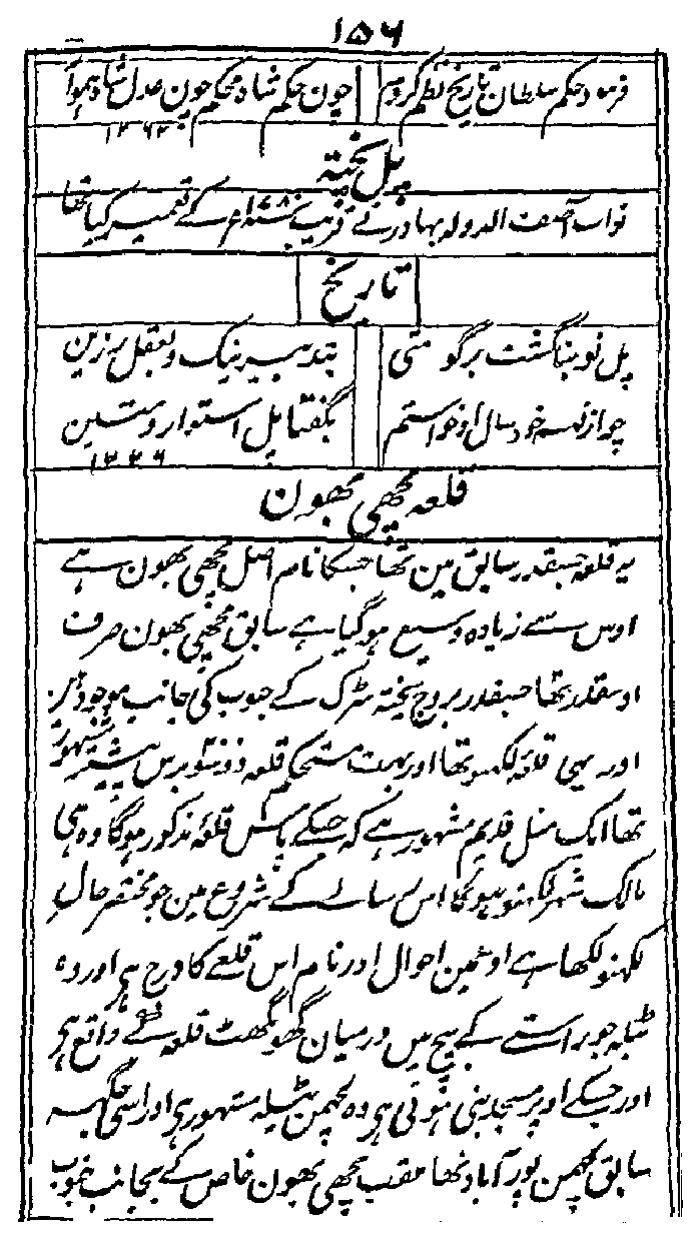 ۱۵۶
فرمود حکم سلطان تاریخ نظم کردم چون حکم شاه محکم چون عدل شاه
۱۲۶۳
پل پختہ
نواب آصف الدولہ بہادر نے قریب کے تعمیر کیا تھا
تاریخ
پل نو بنا گشت بر گومتی بتدبیر نیک و بعقل رزین
چو از خود سال او خواستم بگفتا پل استوار و متین
قلعہ مچھی بھون
یہ قلعہ جسقدر سابق مین تھا جسکا نام اصل مچھی بھون ہے
اوس سے زیادہ وسیع ہو گیا ہے سابق مچھی بھون صرف
اوسقدر تھا جسقدر بروج پختہ سڑک کے جنوب کی جانب موجود ہین
اور یہی قلعہ لکھنو تھا اور بہت مستحکم قلعہ دو سو برس پیشتر مشہور
تھا ایک مثل قدیم مشہور ہے کہ جسکے پاس قلعہ مذکور ہوگا وہ ہی
مالک شہر لکھنو ہوگا اس رسالے کے شروع مین جو مختصر حال
لکھنو لکھا ہے اوسمین احوال اور نام اس قلعے کا درج ہی اور وہ
ٹیلہ جو راستے کے بیچ میں درمیان گھونگھٹ قلعہ کے واقع ہی
اور جسکے اوپر مسجد بنی ہوئی ہی وہ لچھمن ٹیلہ مشہور ہی اور اسی جگہہ
سابق لچھمن پور آباد تھا عقب مچھی بھون خاص کے بجانب جنوب